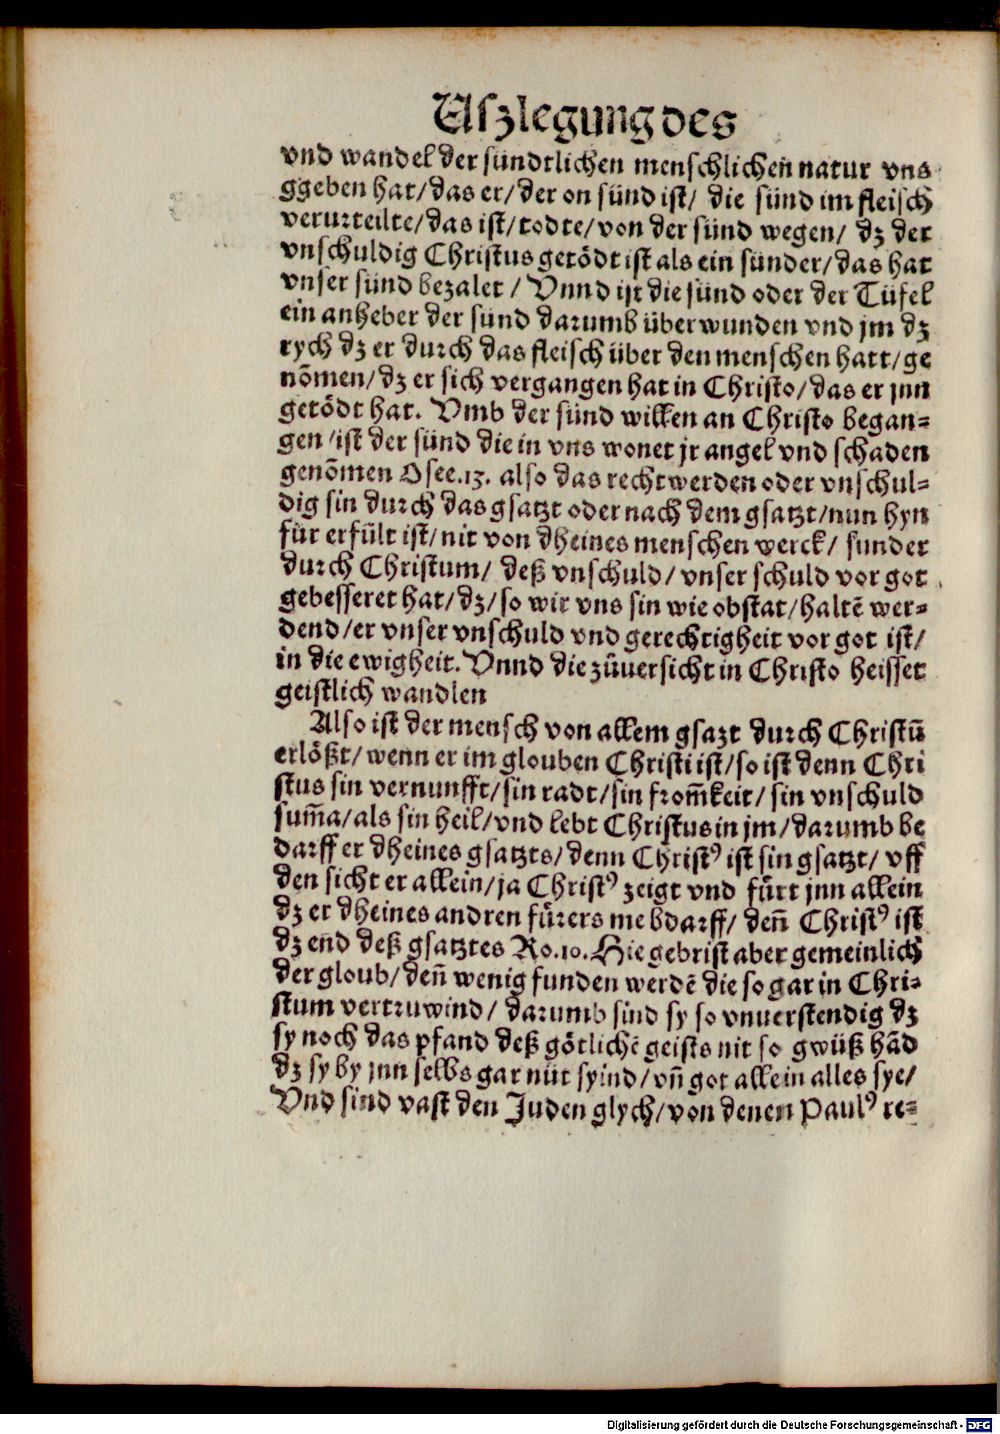 Uſzlegung des
vnd wandel der ſündtlichen menſchlichen̄ natur vns
ggeben hat/das er/der on ſünd iſt/ die ſünd im fleiſch
verurteilte/das iſt/todte/von der ſünd wegen/ dz der
vnſchuldig Chriſtus getödt iſt als ein ſünder/das hat
vnſer ſünd bezalet / Vnnd iſt die ſünd oder der Tüfel
ein anheber der ſünd darumb überwunden vnd jm dz
rych dz er durch das fleiſch über den menſchen hatt/ge
nōmen/dz er ſich vergangen hat in Chriſto/das er jnn
getödt hat. Vmb der ſünd willen an Chriſto began⸗
gen/iſt der ſünd die in vns wonet jr angel vnd ſchaden
genōmen Oſee.13. alſo das rechtwerden oder vnſchul⸗
dig ſin durch das gſatzt oder nach dem gſatzt/nun hyn
für erfült iſt/nit von dheines menſchen werck/ ſunder
durch Chriſtum/ deß vnſchuld/vnſer ſchuld vor got
gebeſſeret hat/dz/ſo wir vns ſin wie obſtat/haltē wer⸗
dend/er vnſer vnſchuld vnd gerechtigheit vor got iſt/
in die ewigheit. Vnnd die zůuerſicht in Chriſto heiſſet
geiſtlich wandlen
Alſo iſt der menſch von allem gſazt durch Chriſtū
erlößt/wenn er im glouben Chriſti iſt/ſo iſt denn Chri
ſtus ſin vernunfft/ſin radt/ſin from̄keit/ſin vnſchuld
ſum̄a/als ſin heil/vnd lebt Chriſtus in jm/darumb be
darff er dheines gſatzts/denn Chriſtꝰ iſt ſin gſatzt/ vff
den ſicht er allein/ja Chriſtꝰ zeigt vnd fůrt jnn allein
dz er dheines andren fůrers me bdarff/ den̄ Chriſtꝰ iſt
dz end deß gſatztes Ro.10. Hie gebriſt aber gemeinlich
der gloub/den̄ wenig funden werdē die ſo gar in Chri⸗
ſtum vertruwind/ darumb ſind ſy ſo vnuerſtendig dz
ſy noch das pfand deß götlichē geiſts nit ſo gwüß hād
dz ſy by jnn ſelbs gar nüt ſyind/vn̄ got allein alles ſye/
Vnd ſind vaſt den Juden glych/von denen Paulꝰ re⸗
Digitalisierung gefördert durch die Deutsche Forschungsgemeinschaft - DFG